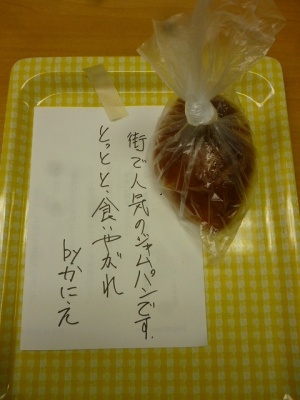 街で人気のジャムパンです。
とっとと、食いやがれ
byかにえ